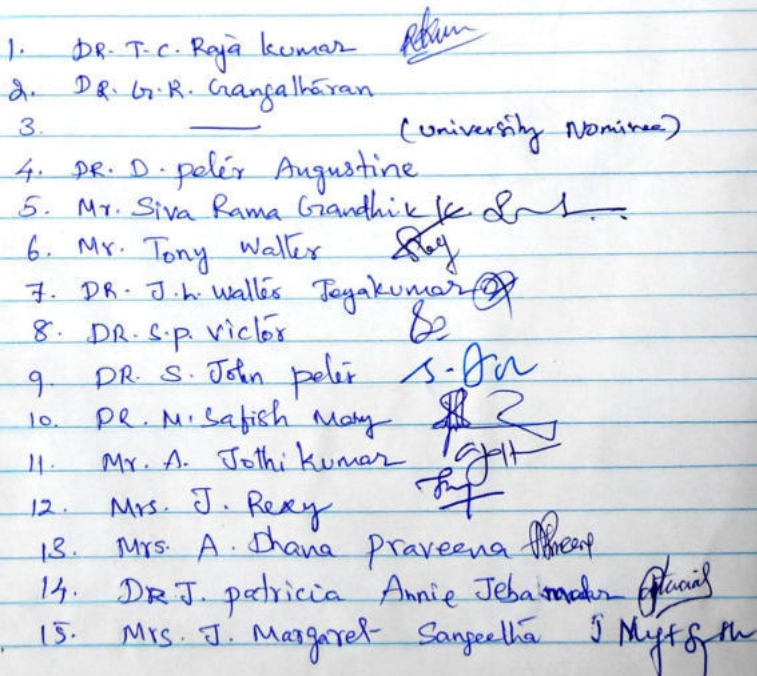 1. DR. T.C. Raja kumar
2. DR. G.R. Gangatharan
3. — (University Nominee)
4. DR. D. peter Augustine
5. Mr. Siva Rama Gandhi k
6. Mr. Tony Walter
7. DR. J.L. Walter Jeyakumar
8. DR. S.P. Victor
9. DR. S. John peter
10. DR. M. Safish Mary
11. Mr. A. Jothi kumar
12. Mrs. J. Rexy
13. Mrs. A. Dhana Praveena
14. DR J. patricia Annie Jebamalar
15. Mrs. J. Margaret Sangeetha